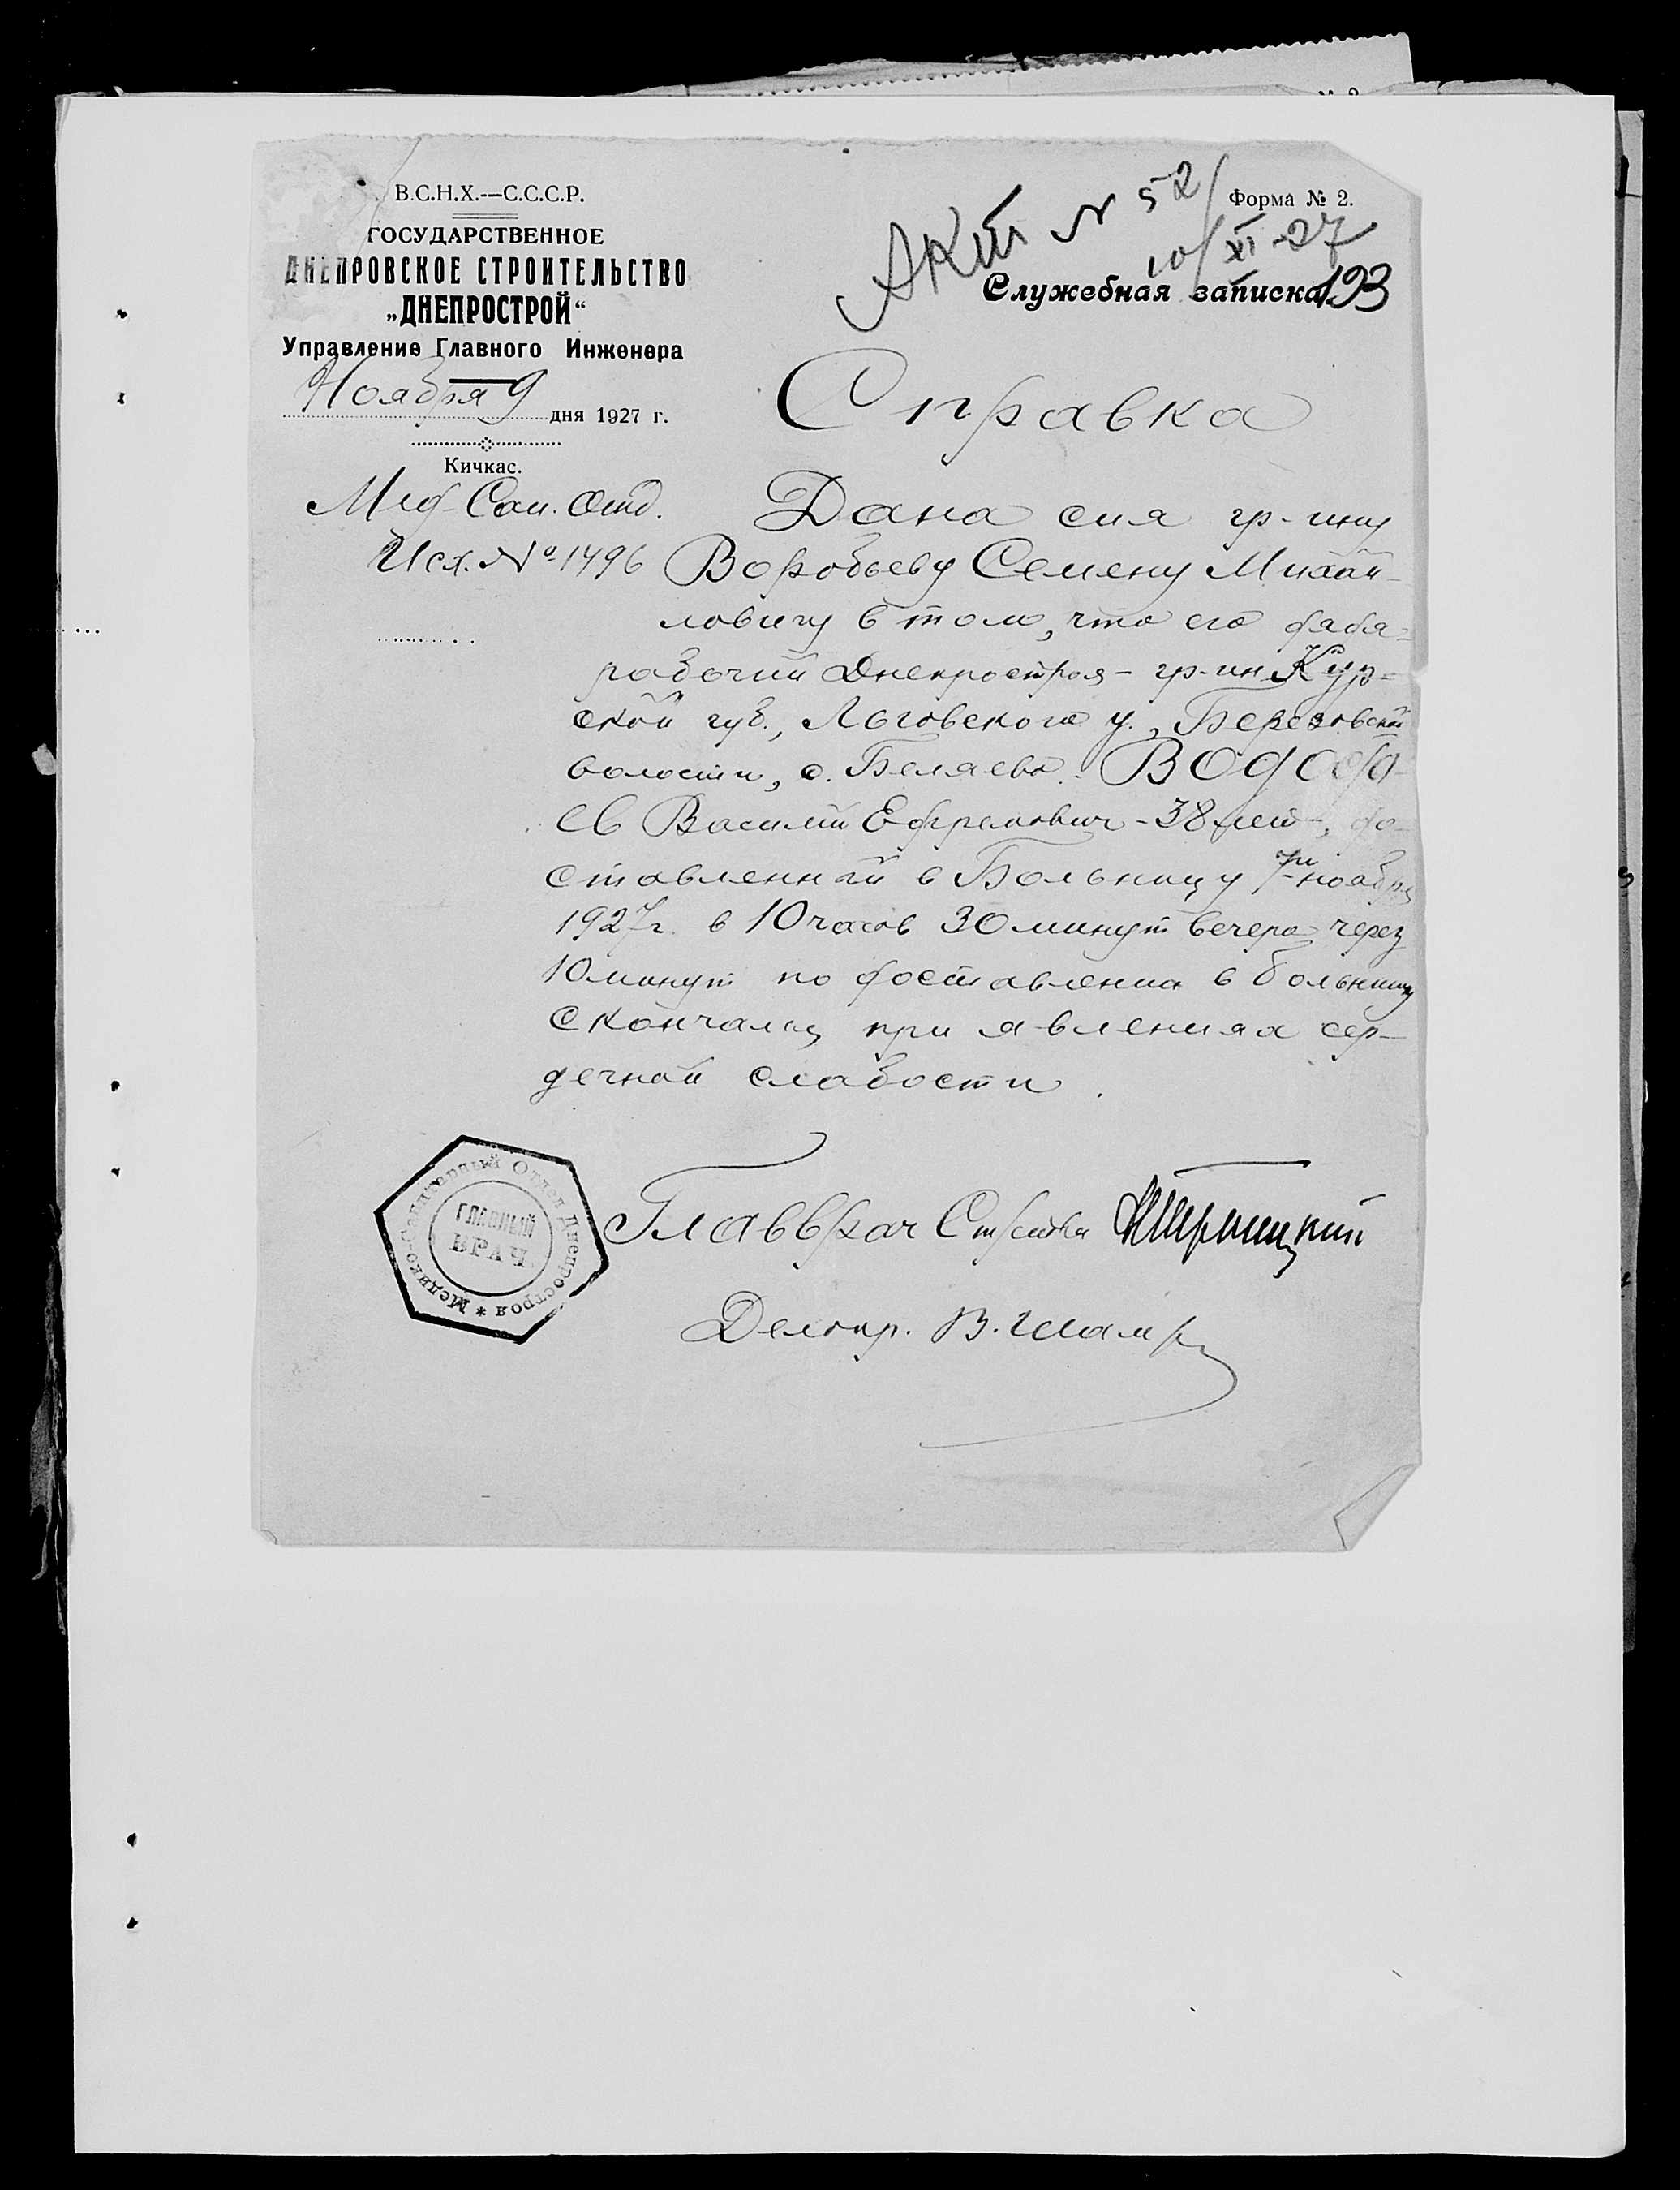 В.С.Н.Х.—С.С.С.Р.
ГОСУДАРСТВЕННОЕ
ДНЕПРОВСКОЕ СТРОИТЕЛЬСТВО
„ДНЕПРОСТРОЙ“
Управление Главного Инженера
Ноября 9 дня 1927 г.
Кичкас.
Мед-Сан. Отд.
Исх. № 1496
Форма № 2.
Акт N 52
10/XI-27
Служебная записка
193
Справка
Дана сия гр-ину
Воробьеву Семену Михай-
ловичу в том, что его дядя-
рабочий Днепростроя - гр-ин Кур-
ской губ., Льговского у., Березовской
волости, с. Беляево
ев Василий Ефремович - 38 лет, до-
ставленный в Больницу 7го ноября
1927г. в 10 часов 30 минут вечера через
10 минут по доставлении в больницу
скончался при явлениях сер-
дечной слабости.
Медико-Санитарный Отдел Днепростроя *
ГЛАВНЫЙ
ВРАЧ
Главврач
Делопр. В.